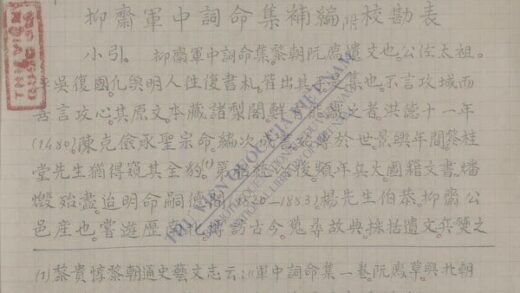 抑齋軍中詞命集補編附校勘表
小引。抑齋軍中詞命集黎朝阮廌遺文也。公佐太祖。
平吳復國凡與明人往復書札。皆出其手文集也。不言攻城而
善言攻心。其原文本藏諸梨閣鮮有識之者洪德十一年
(1480)陳克儉承聖宗命編次成書始傳於世景興年間黎桂
堂先生猶得窺其全豹(1)第經公後頻年兵火圖籍文書。燔
燬殆盡迨明命嗣德間(1820-1883)楊先生伯恭。抑齋公
邑產也。嘗遊歷南北博訪古今。蒐尋故典採括遺文
(1)黎貴惇黎朝通史藝文志云:"軍中詞命集一卷。阮廌草與北朝
THƯ VIỆN
QUỐC GIA